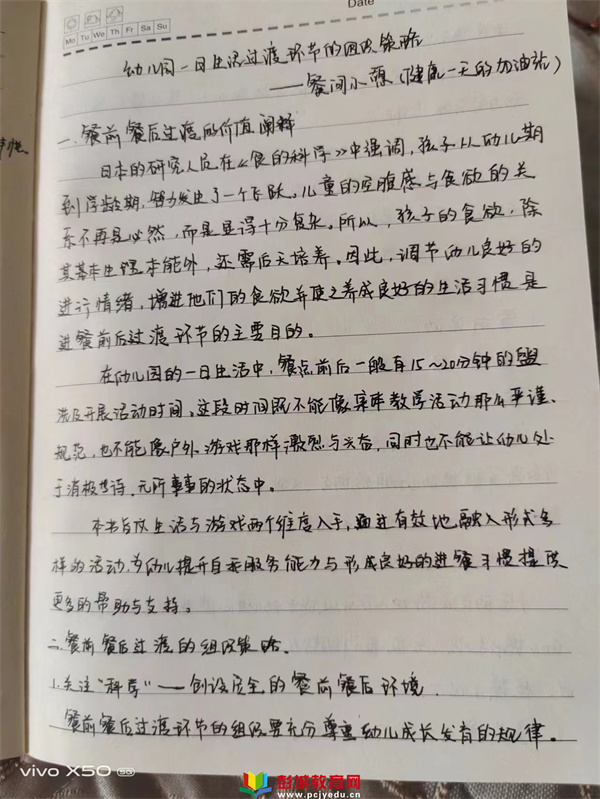 Date
Mo Tu We Th Fr Sa Su
幼儿园一日生活过渡环节的组织策略
——餐间小憩(健康一天的加油站)
一、餐前餐后过渡的价值阐释
日本的研究人员在《食的科学》中强调,孩子从幼儿期
到学龄期,智力发生了一个飞跃。儿童的空腹感与食欲的关
系不再是必然,而是显得十分复杂。所以,孩子的食欲,除
其基本生理本能外,还需后天培养。因此,调节幼儿良好的
进行情绪,增进他们的食欲并使之养成良好的生活习惯是
进餐前后过渡环节的主要目的。
在幼儿园的一日生活中,餐点前后一般有15~20分钟的盥
洗及开展活动时间。这段时间既不能像集体教学活动那么严谨、
规范,也不能像户外游戏那样激烈与兴奋,同时也不能让幼儿处
于消极等待、无所事事的状态中。
本书从生活与游戏两个维度入手,通过有效地融入形式多
样的活动,为幼儿提升自我服务能力与形成良好的进餐习惯提供
更多的帮助与支持。
二、餐前餐后过渡的组织策略.
1.关注“科学”——创设安全的餐前餐后环境.
餐前餐后过渡环节的组织要充分尊重幼儿成长发育的规律。
vivo X50 5G
彭城教育网
www.pcjyedu.cn